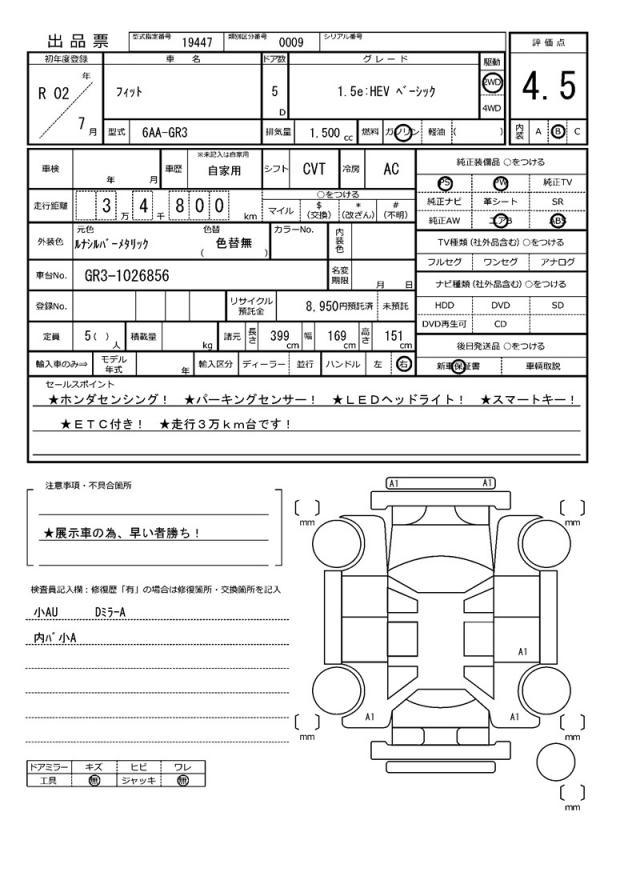 出品票 型式指定番号 19447 類別区分番号 0009 シリアル番号
評価点
4.5
内装 A B C
初年度登録 車名 ドア数 グレード 駆動
R 02 年 7 月 フィット 5 D 1.5e:HEV ベーシック 2WD 4WD
型式 6AA-GR3 排気量 1.500 cc 燃料 ガソリン 軽油 ( )
車検 年 月 車歴 ※未記入は自家用 自家用 シフト CVT 冷房 AC
走行距離 3 万 4 千 8 0 0 km ○をつける マイル $ (交換) * (改ざん) # (不明)
外装色 元色 ルナシルバーメタリック 色替 ( 色替無 ) カラーNo. 内装色
車台No. GR3-1026856 名変期限 月 日
登録No. リサイクル預託金 8,950円預託済 未預託
定員 5 ( ) 人 積載量 kg 諸元 長さ 399 cm 幅 169 cm 高さ 151 cm
輸入車のみ⇒ モデル年式 年 輸入区分 ディーラー 並行 ハンドル 左 右
純正装備品 ○をつける
PS PW 純正TV
純正ナビ 革シート SR
純正AW エアB ABS
TV種類 (社外品含む) ○をつける
フルセグ ワンセグ アナログ
ナビ種類 (社外品含む) ○をつける
HDD DVD SD
DVD再生可 CD
後日発送品 ○をつける
新車保証書 車輌取説
セールスポイント
★ホンダセンシング! ★パーキングセンサー! ★LEDヘッドライト! ★スマートキー!
★ETC付き! ★走行3万km台です!
注意事項・不具合箇所
★展示車の為、早い者勝ち!
検査員記入欄:修復歴「有」の場合は修復箇所・交換箇所を記入
小AU DミラーA
内バ小A
ドアミラー キズ ヒビ ワレ
工具 無 ジャッキ 無
A1 A1
[ ] mm [ ] mm
A1
A1 A1
[ ] mm [ ] mm
[ ] mm